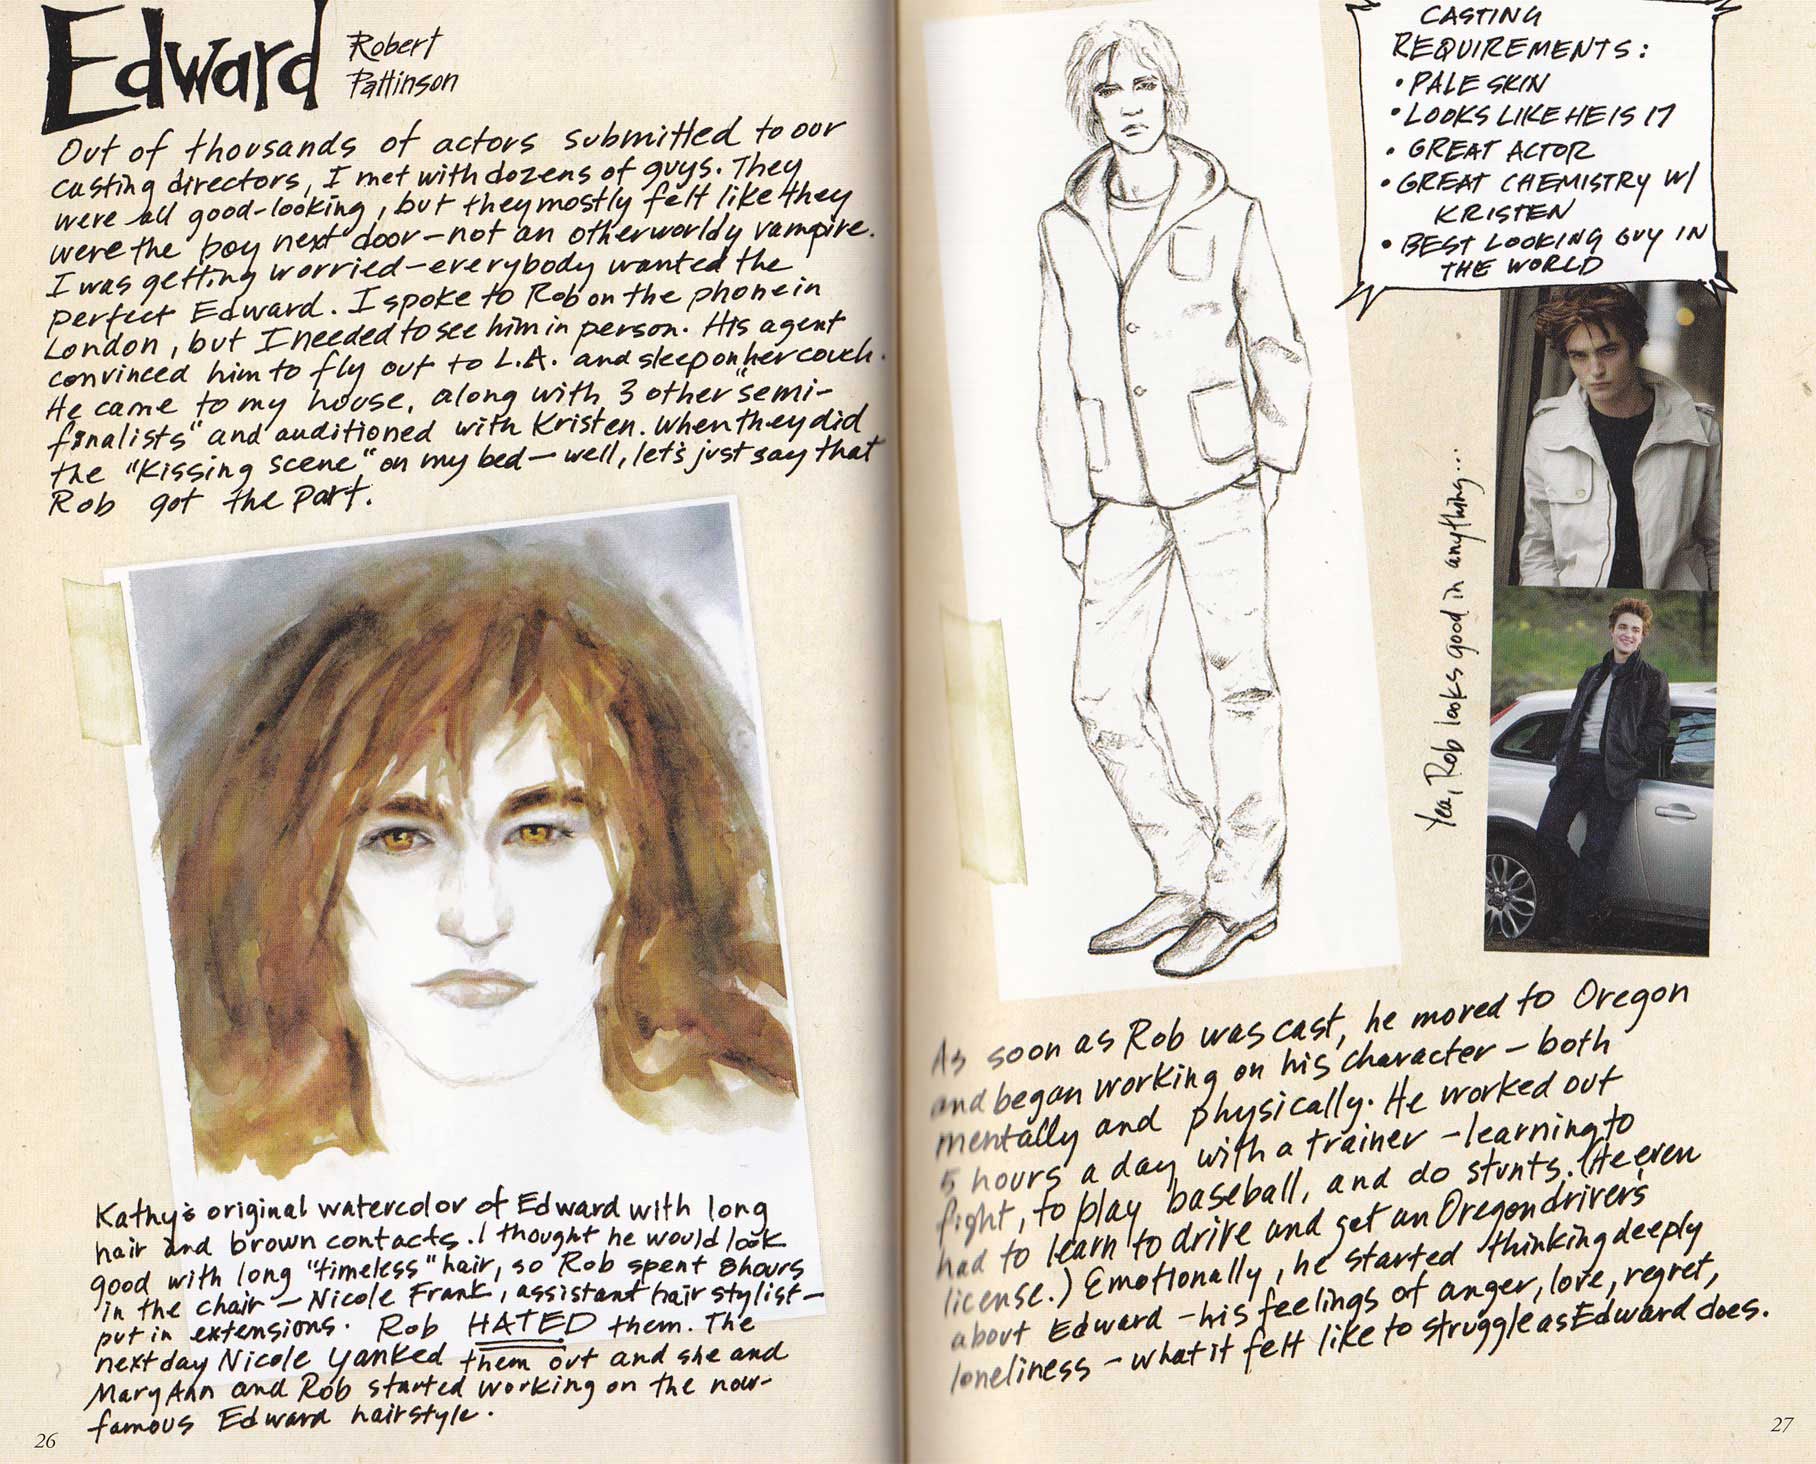 Edward
Robert
Pattinson
Out of thousands of actors submitted to our
casting directors, I met with dozens of guys. They
were all good-looking, but they mostly felt like they
were the boy next door—not an otherworldly vampire.
I was getting worried—everybody wanted the
perfect Edward. I spoke to Rob on the phone in
London, but I needed to see him in person. His agent
convinced him to fly out to L.A. and sleep on her couch.
He came to my house, along with 3 other "semi-
finalists" and auditioned with Kristen. When they did
the "Kissing scene" on my bed—well, let's just say that
Rob got the part.
Kathy's original watercolor of Edward with long
hair and brown contacts. I thought he would look
good with long "timeless" hair, so Rob spent 8 hours
in the chair—Nicole Frank, assistant hair stylist—
put in extensions. Rob HATED them. The
next day Nicole yanked them out and she and
Mary Ann and Rob started working on the now-
famous Edward hairstyle.
26
CASTING
REQUIREMENTS:
• PALE SKIN
• LOOKS LIKE HE IS 17
• GREAT ACTOR
• GREAT CHEMISTRY W/
KRISTEN
• BEST LOOKING GUY IN
THE WORLD
Yea, Rob looks good in anything...
As soon as Rob was cast, he moved to Oregon
and began working on his character—both
mentally and physically. He worked out
5 hours a day with a trainer—learning to
fight, to play baseball, and do stunts. (He even
had to learn to drive and get an Oregon drivers
license.) Emotionally, he started thinking deeply
about Edward—his feelings of anger, love, regret,
loneliness—what it felt like to struggle as Edward does.
27